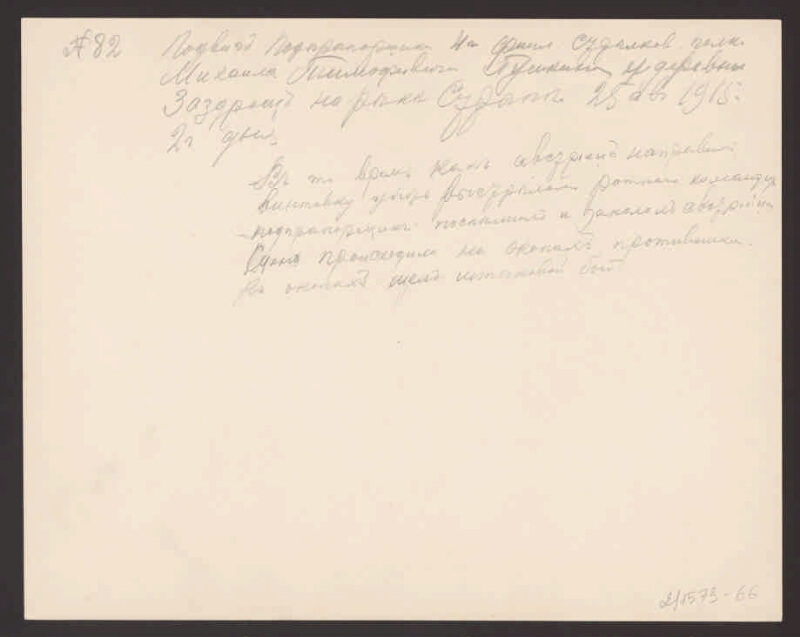 № 82 Подвигъ Подпрапорщика 4го финл. стрѣлков. полк.
Михаила Тимофѣевича у деревни
Заздрость на рѣкѣ 25 ав 1915.
2ч дня.
Въ то время какъ австрiецъ направилъ
винтовку чтобы выстрѣлить ротнаго командира
подпрапорщикъ и закололъ австрiйца
Сцена происходила на окопахъ противника.
въ окопахъ шелъ штыковой бой
2/1573-66